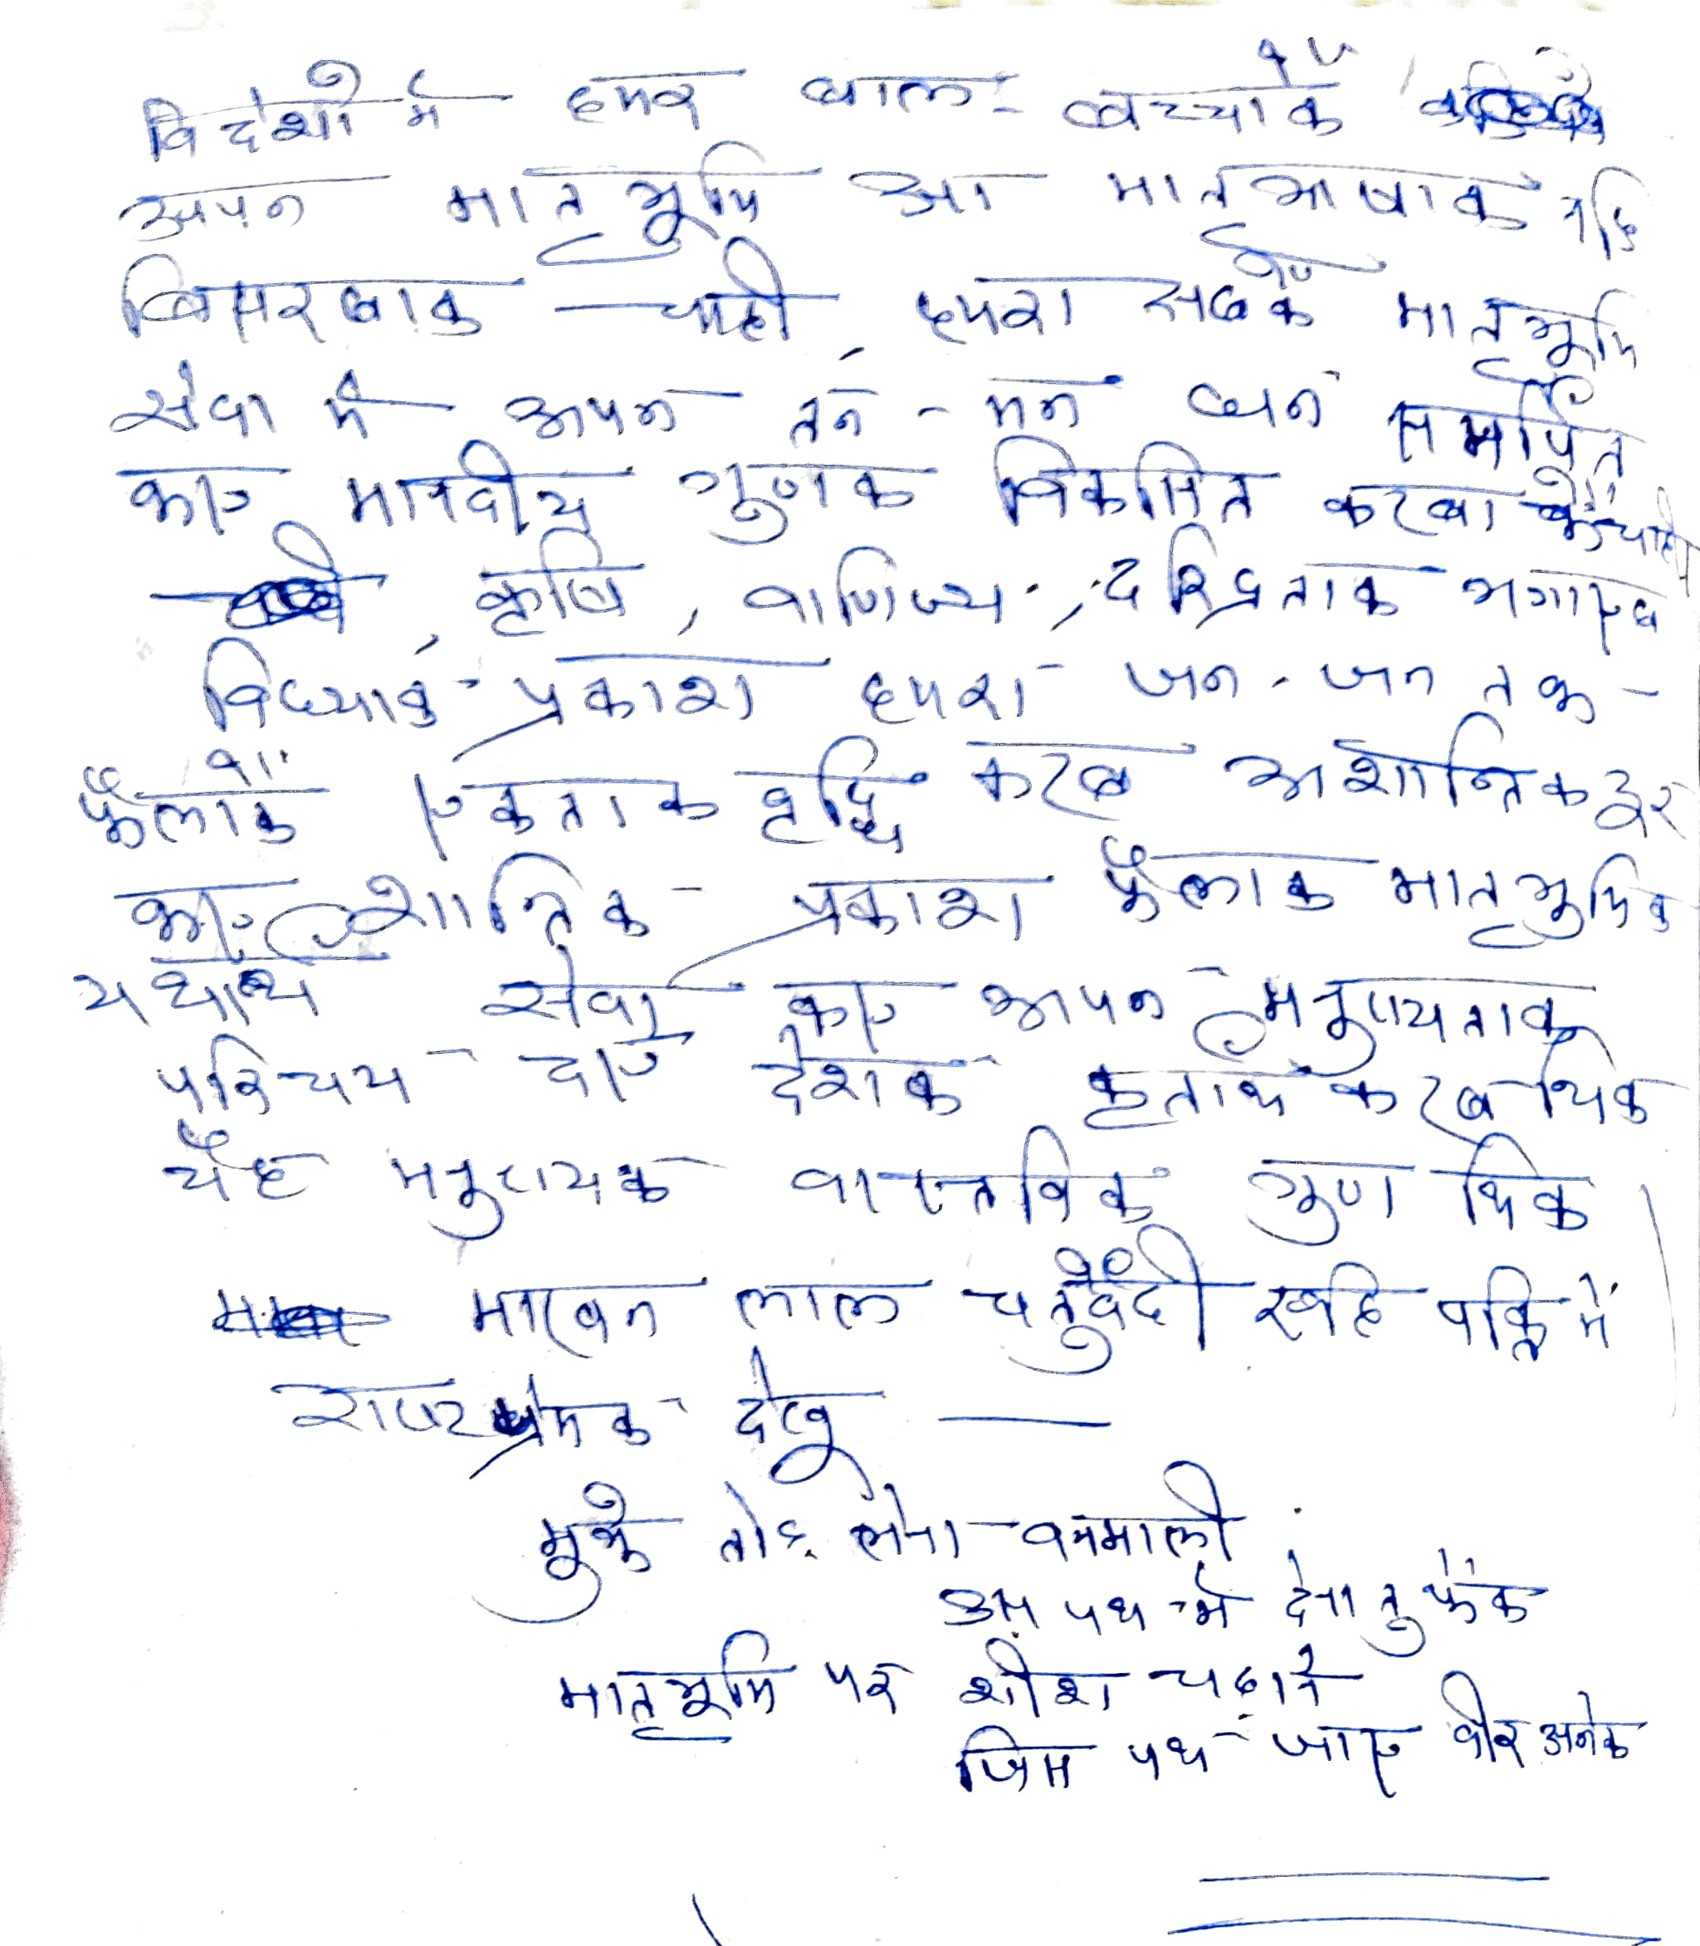 विदेशो मे हमर बाल- बच्चाकेँ
अपन मातृभूमि आ मातृभाषाक नहि
बिसरबाक चाही, हमरा सबकेँ मातृभूमि
सेवा मे अपन तन - मन धन समर्पित
कए मानवीय गुणक विकसित करबा चाही
, कृषि, वाणिज्य, दरिद्रताक भगाएब
विद्याक प्रकाश हमरा जन-जन तक -
फैलाकेँ एकताक वृद्धि करब अशान्तिक दूर
कए शान्तिक प्रकाश फैलाक मातृभूमिक
यथार्थ सेवा कए अपन मनुष्यताक
परिचय दए देशक कृतार्थ करब थिक
यैह मनुष्यक वास्तविक गुण थिक
माखन लाल चतुर्वेदी एहि पंक्ति में
राष्ट्रप्रेमक देखू —
मुझे तोड़ लेना वनमाली
उस पथ में देना तु फेंक
मातृभूमि पर शीश चढ़ाने
जिस पथ जाए वीर अनेक